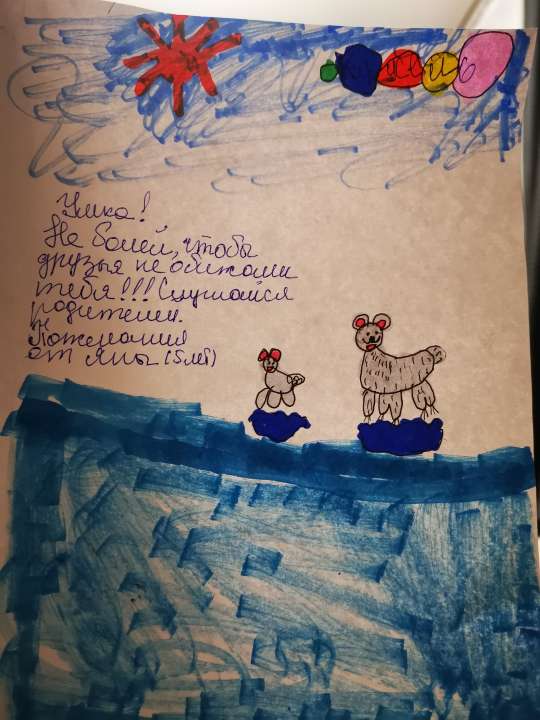 Умка!
Не болей, чтобы
друзья не обижали
тебя!!! Слушайся
родителей.
Пожелания
от Яны (5 лет)